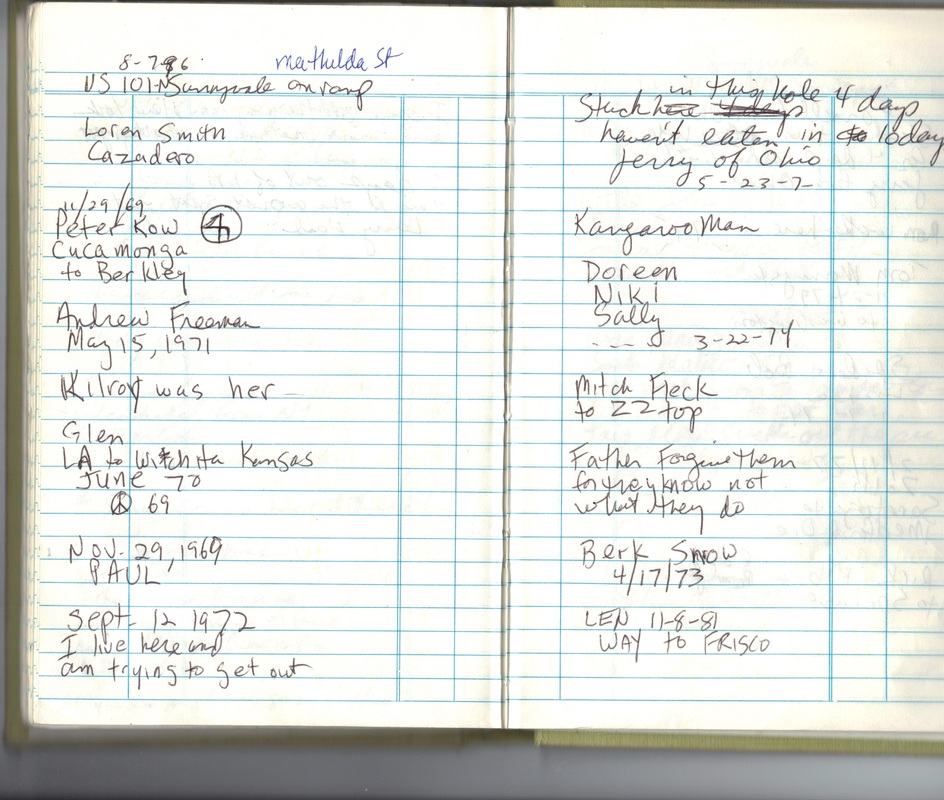 8-7-86 mathilda St
US 101-N Sunnyvale onramp
Loren Smith
Cazadero
11/29/69
Peter Kow
Cucamonga
to Berkley
Andrew Freeman
May 15, 1971
Kilroy was her
Glen
LA to Witchita Kansas
June 70
69
Nov. 29, 1969
PAUL
Sept. 12 1972
I live here and
am trying to get out
in this hole 4 days
Stuck
haven't eaten in 10 day
Jerry of Ohio
5-23-7-
Kangaroo Man
Doreen
Niki
Sally
---- 3-22-74
Mitch Fleck
to ZZ top
Father Forgive them
for they know not
what they do
Berk Snow
4/17/73
LEN 11-8-81
WAY to FRISCO